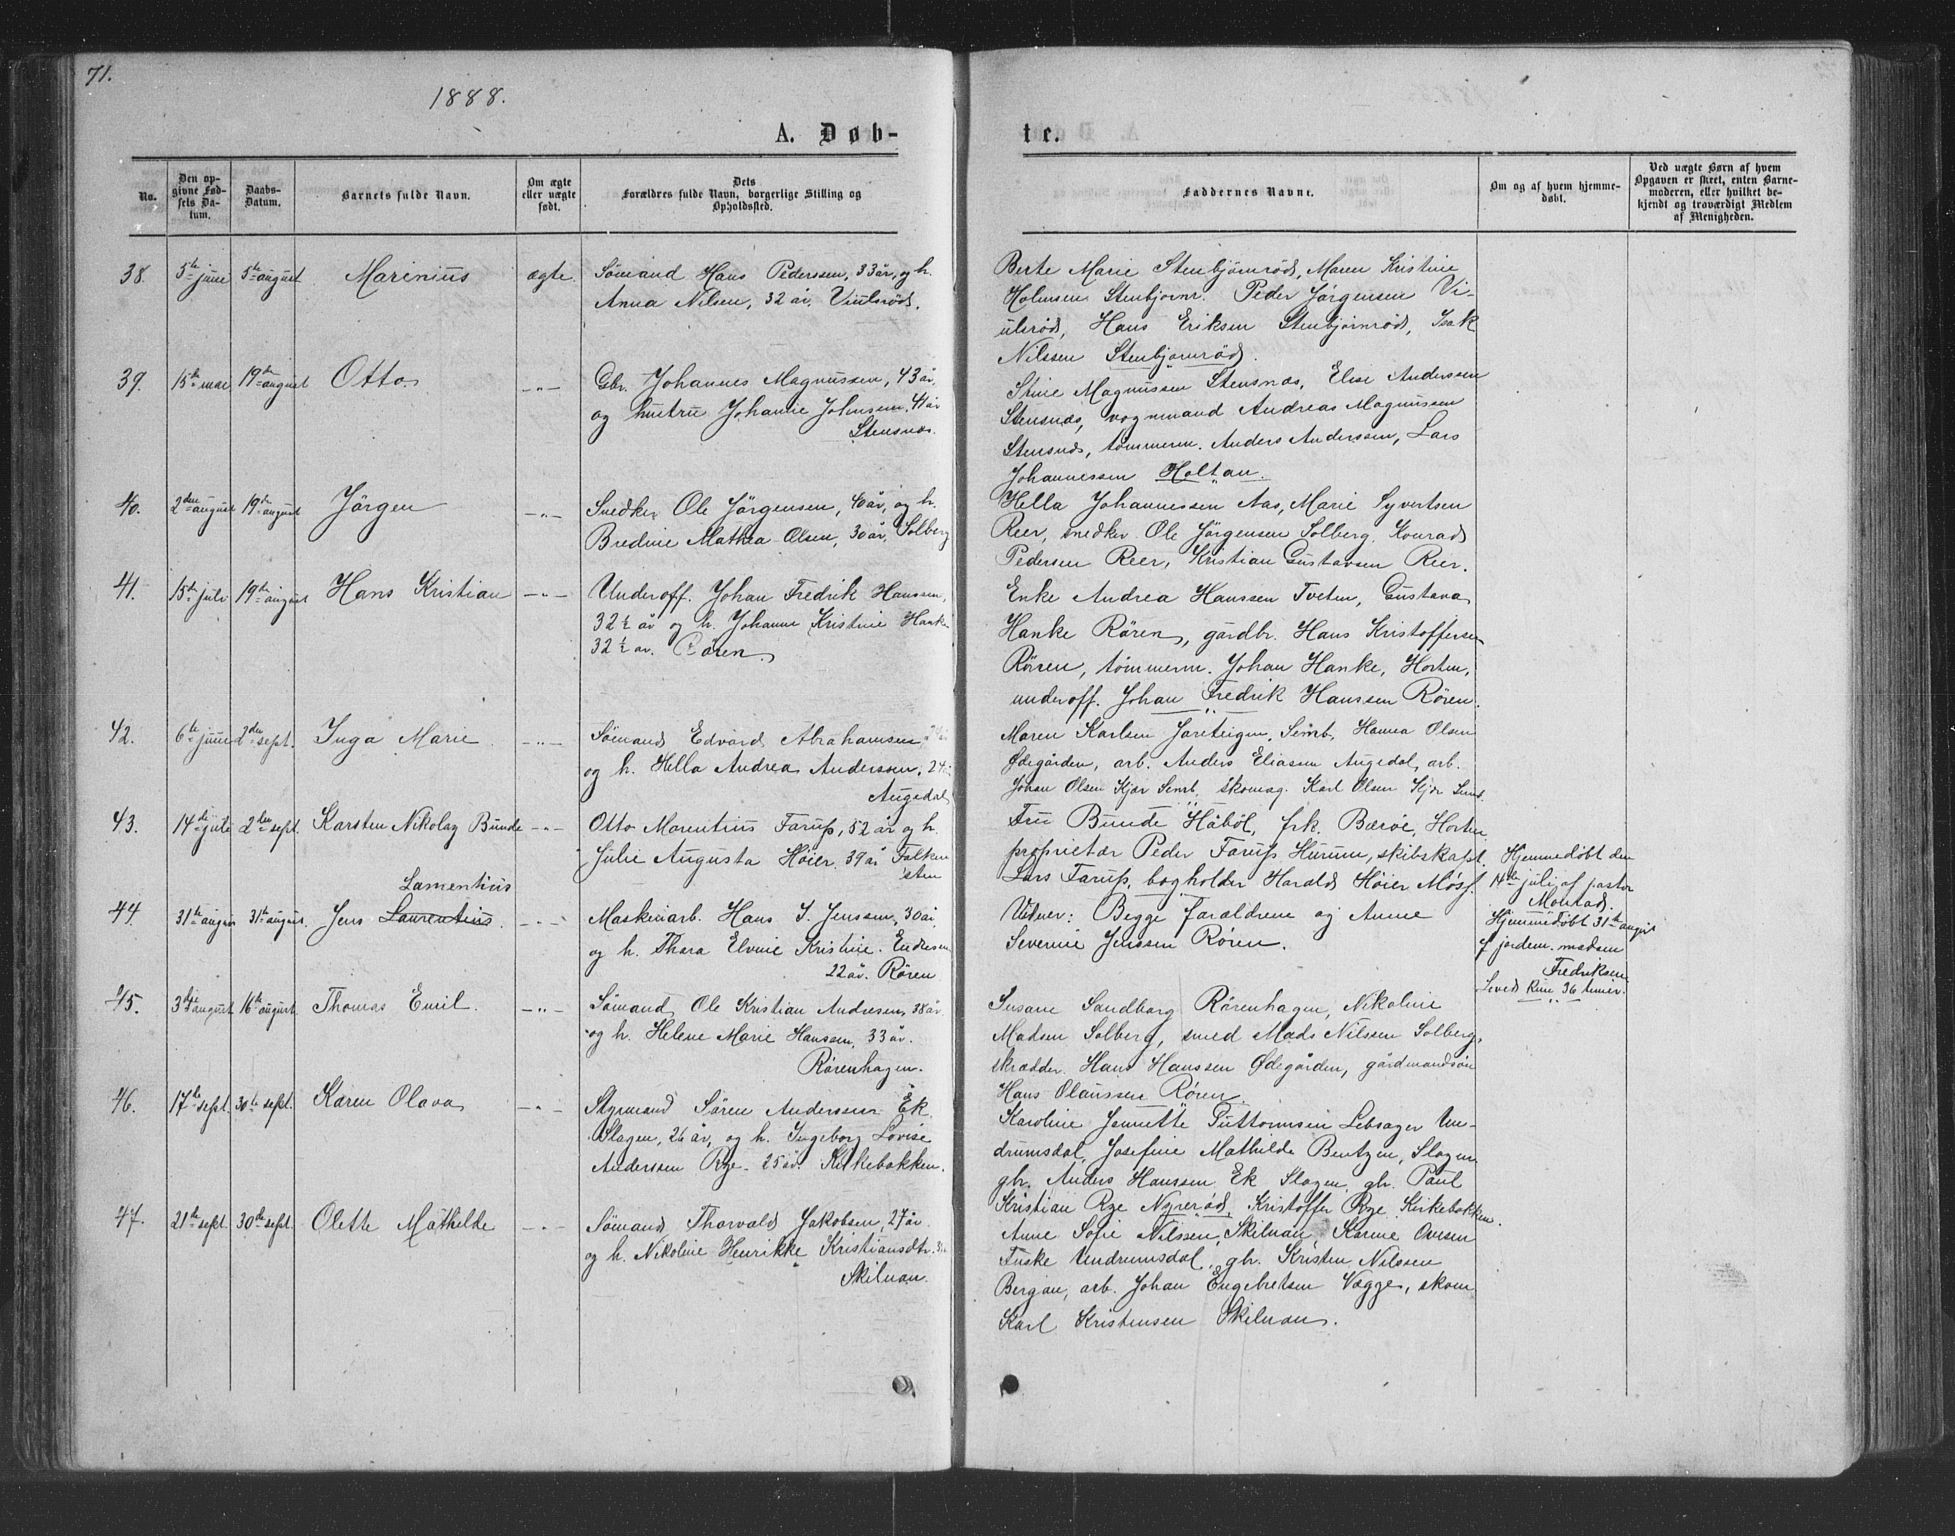 71.
1888.
A. Døb-
te.
No.
Den op-
givne Fød-
sels Da-
tum.
Daabs-
Datum.
Barnets fulde Navn.
Om ægte
eller uægte
født.
Dets
Forældres fulde Navn, borgerlige Stilling og
Opholdssted.
Faddernes Navne.
Om og af hvem hjemme-
døbt.
Ved uægte Børn af hvem
Opgaven er skret, enten Barne-
moderen, eller hvilket be-
kjendt og troværdigt Medlem
af Menigheden.
38. 5te juni 5te august Marinius ægte. Sømand Hans Pederssen, 33 år, og h.
Anna Nilsen, 32 år, Viulsrød.
Berte Marie Stenbjørnrød, Maren Kristine
Holmsen Stenbjørnr. Peder Jørgensen Vi-
ulsrød, Hans Eriksen Stenbjørnrød, Isak
Nilssen Stenbjørnrød.
39. 15de mai 19de august Otto. -"- Gbr. Johannes Magnussen, 43 år,
og hustru Johanne Johnsen, 41 år
Stensnæs.
Stine Magnussen Stensnæs, Elise Anderssen
Stensnæs, vognmand Andreas Magnussen
Stensnæs, tømmerm. Anders Anderssen, Lars
Johannessen Holtan.
40. 2den august 19de august Jörgen -"- Snedker Ole Jørgensen, 40 år, og h.
Bredine Mathea Olsen, 30 år, Solberg
Hella Johannessen Aas, Marie Syvertsen
Reer, snedker Ole Jørgensen Solberg, Konrad
Pedersen Reer, Kristian Gustavsen Reer.
41. 15de juli 19de august Hans Kristian -"- Underoff. Johan Fredrik Hanssen,
32½ år og h. Johanne Kristine Hanke
32½ år. Røren.
Enke Andrea Hanssen Tveten, Gustava
Hanke Røren, gårdbr. Hans Kristoffersen
Røren, tømmerm. Johan Hanke, Horten,
underoff. Johan Fredrik Hanssen Røren.
42. 6te juni 2den sept. Inga Marie -"- Sømand Edvard Abrahamsen
og h. Hella Andrea Anderssen, 24
Augedal
Maren Karlsen Jareteigen, Semb, Hanna Olsen
Ødegården, arb. Anders Eliasen Augedal, arb.
Johan Olsen Kjær Semb, skomag. Karl Olsen Kjær Semb.
43. 14de juli 2den sept. Karsten Nikolay Bunde -"- Otto Morentius Farup, 52 år og h.
Julie Augusta Høier, 39 år Falken
sten
Fru Bunde Håbøl, frk. Bærøe, Horten
proprietær Peder Farup Hurum, skibskapt.
Lars Farup, bogholder Harald Høier Moss.
Hjemmedøbt den
14de juli af pastor
Monrad.
44. 31te august 31te august. Jens Laurentius. Lamentius -"- Maskinarb. Hans J. Jenssen, 30 år,
og h. Thora Elvine Kristine Endresen
22 år. Røren
Vidner: Begge forældrene og Anne
Severine Jenssen Røren.
Hjemmedøbt 31te august
af jordem. madam
Fredriksen
Leved kun 36 timer.
45. 3die august 16te august Thomas Emil. -"- Sømand Ole Kristian Andresen, 38 år
og h. Helene Marie Hanssen, 33 år.
Rørenhagen.
Susane Sandborg Rørenhagen, Nikoline
Madsen Solberg, smed Mads Nilssen Solberg,
skrædder Hans Hanssen Ødegården, gårdmandsøn
Hans Olaussen Røren.
46. 17te sept. 30te sept. Karen Olava -"- Styrmand Søren Anderssen Ek
Slagen, 26 år, og h. Ingeborg Lovise
Anderssen Rye 25 år. Kirkebakken.
Karoline Jenette Guttormsen Lebsager Un-
drumsdal, Josefine Mathilde Bentzen, Slagen
gbr. Anders Hanssen Ek Slagen, gbr. Paul
Kristian Rye Nyrerød, Kristoffer Rye Kirkebakken.
47. 21te sept. 30te sept. Olette Mathilde -"- Sømand Thorvald Jakobsen, 27 år
og h. Nikoline Henrikke Kristiansdtr.
Skilnan.
Anne Sofie Nilssen, Skilnan, Karine Ovesen
Fuske Undrumsdal, gbr. Kristen Nilssen
Bergan, arb. Johan Engebretsen Vægge, skom
Karl Kristensen Skilnan.